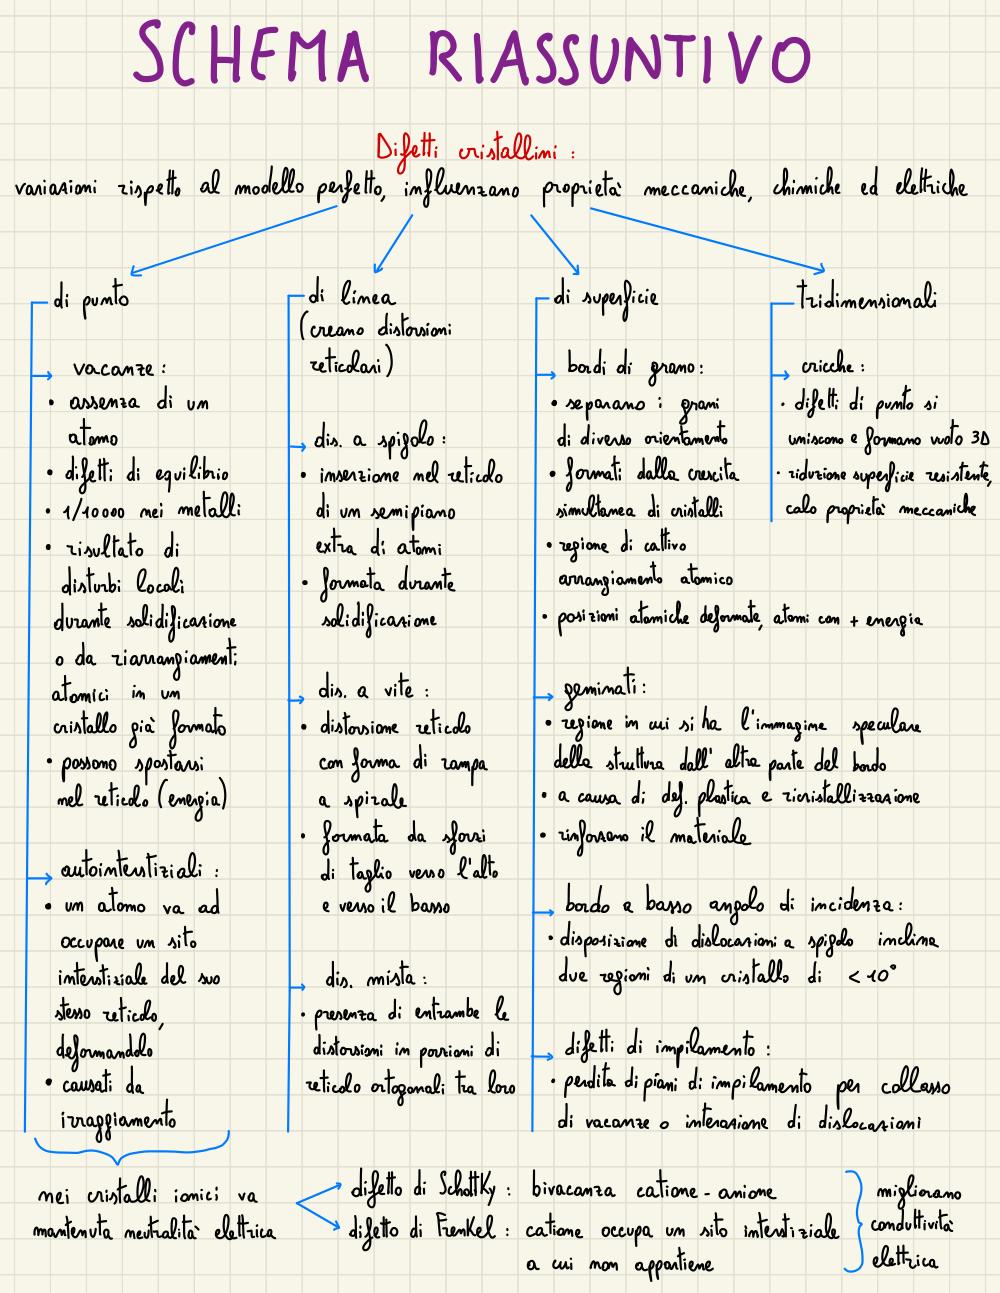 SCHEMA RIASSUNTIVO
Difetti cristallini :
variazioni rispetto al modello perfetto, influenzano proprietà meccaniche, chimiche ed elettriche
di punto
vacanze :
• assenza di un
atomo
• difetti di equilibrio
• 1/10000 nei metalli
• risultato di
disturbi locali
durante solidificazione
o da riarrangiamenti
atomici in un
cristallo già formato
• possono spostarsi
nel reticolo (energia)
autointerstiziali :
• un atomo va ad
occupare un sito
interstiziale del suo
stesso reticolo,
deformandolo
• causati da
irraggiamento
di linea
(creano distorsioni
reticolari)
dis. a spigolo :
• inserzione nel reticolo
di un semipiano
extra di atomi
• formata durante
solidificazione
dis. a vite :
• distorsione reticolo
con forma di rampa
a spirale
• formata da sforzi
di taglio verso l'alto
e verso il basso
dis. mista :
• presenza di entrambe le
distorsioni in porzioni di
reticolo ortogonali tra loro
di superficie
bordi di grano :
• separano i grani
di diverso orientamento
• formati dalla crescita
simultanea di cristalli
• regione di cattivo
arrangiamento atomico
• posizioni atomiche deformate, atomi con + energia
geminati :
• regione in cui si ha l'immagine speculare
della struttura dall' altra parte del bordo
• a causa di def. plastica e ricristallizzazione
• rinforzano il materiale
bordo a basso angolo di incidenza :
• disposizione di dislocazioni a spigolo inclina
due regioni di un cristallo di < 10°
difetti di impilamento :
• perdita di piani di impilamento per collasso
di vacanze o interazione di dislocazioni
tridimensionali
cricche :
• difetti di punto si
uniscono e formano vuoto 3D
• riduzione superficie resistente,
calo proprietà meccaniche
nei cristalli ionici va
mantenuta neutralità elettrica
difetto di Schottky : bivacanza catione - anione
difetto di Frenkel : catione occupa un sito interstiziale
a cui non appartiene
migliorano
conduttività
elettrica